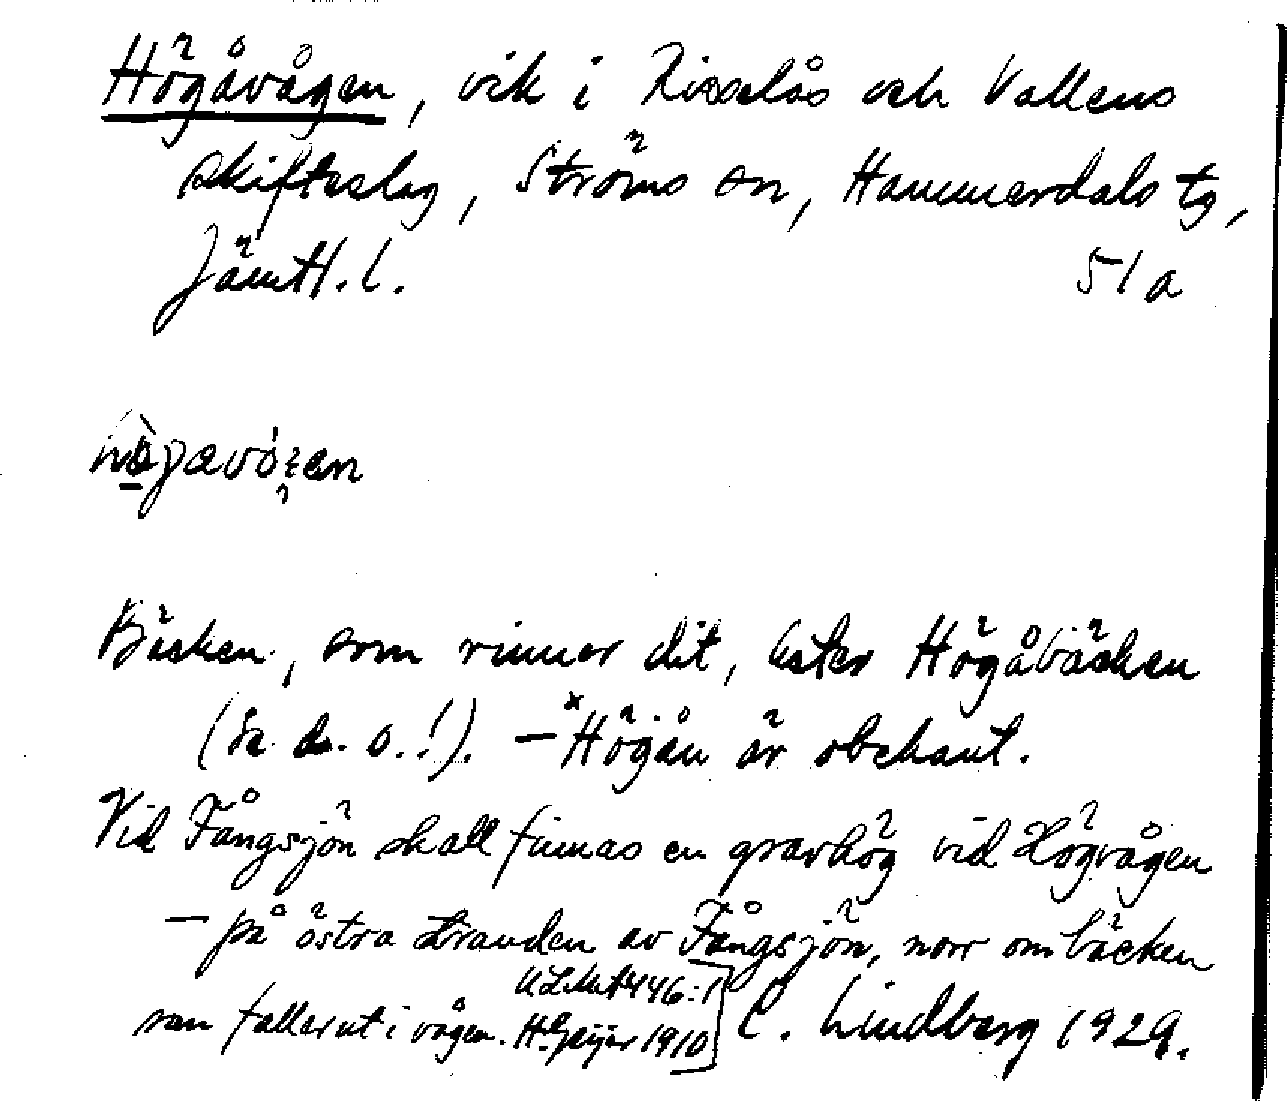 Högåvågen, vik i Risselås och Vallens
skifteslag, Ströms sn, Hammerdals tg,
Jämtl. l. 51 a
Bäcken, som rinner dit, heter Högåbäcken
(Sa. ds. o.!). – *Högån är obekant.
Vid Fångsjön skall finnas en gravhög vid Högvågen
– på östra stranden av Fångsjön, norr om bäcken
som faller ut i vågen. H. Geijer 1910] C. Lindberg 1929.